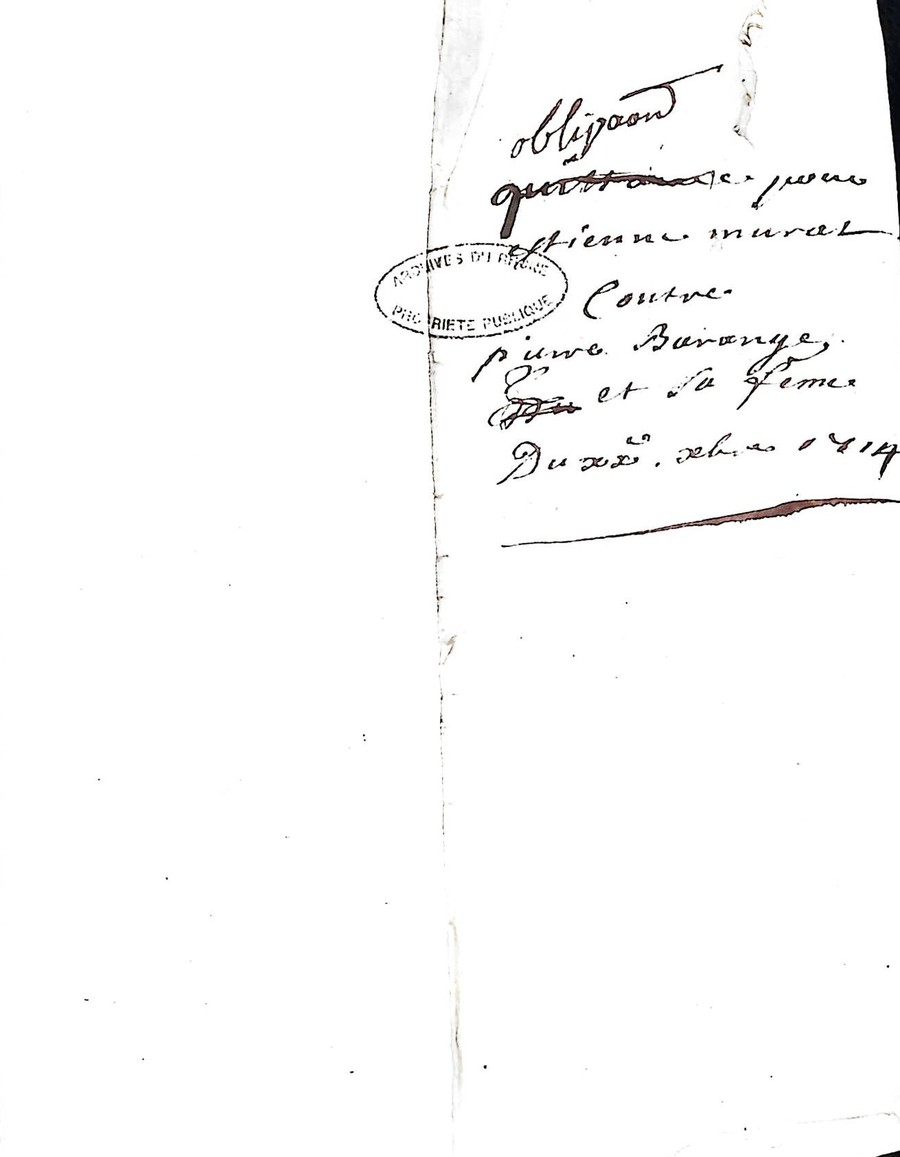 obligaon
quittance pour
estienne murat
ARCHIVES DU RHONE
PROPRIETE PUBLIQUE
Contre
pierre Barange,
et sa feme
Du xxe. xbre 1714